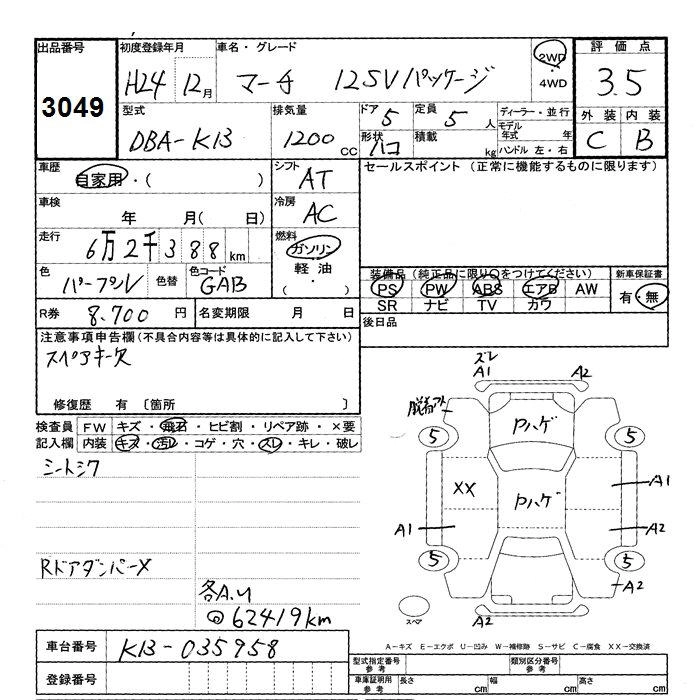 出品番号 初度登録年月 車名・グレード 評価点
3049 H24 12月 マーチ 12SVパッケージ 2WD ・ 4WD 3.5
型式 排気量 ドア 5 定員 5人 ディーラー・並行 外装 内装
DBA-K13 1200cc 形状 ハコ 積載 kg モデル年式 年 ハンドル 左・右 C B
車歴 自家用・( ) シフト AT セールスポイント (正常に機能するものに限ります)
車検 年 月( 日) 冷房 AC
走行 6万2千388km 燃料 ガソリン
色 パープル 色替 色コード GAB 軽油 ・( )
装備品(純正品に限り○をつけてください) 新車保証書
PS PW ABS エアB AW 有・無
SR ナビ TV カワ
R券 8,700円 名変期限 月 日 後日品
注意事項申告欄(不具合内容等は具体的に記入して下さい)
スペアキー欠
修復歴 有 〔箇所 〕
検査員記入欄 FW キズ・飛石・ヒビ割・リペア跡・×要
内装 キズ・汚レ・コゲ・穴・スレ・キレ・破レ
シートシワ
RドアダンパーX
各A.U
@62419km
ズレ
A1 A2
脱着アト
Pハゲ
5 5
XX Pハゲ A1
A1 A2
5 5
A2
スペア A2
A-キズ E-エクボ U-凹み W-補修跡 S-サビ C-腐食 XX-交換済
車台番号 K13-035958
登録番号
型式指定番号 参考 類別区分番号 参考
車庫証明用 参考 長さ cm 幅 cm 高さ cm